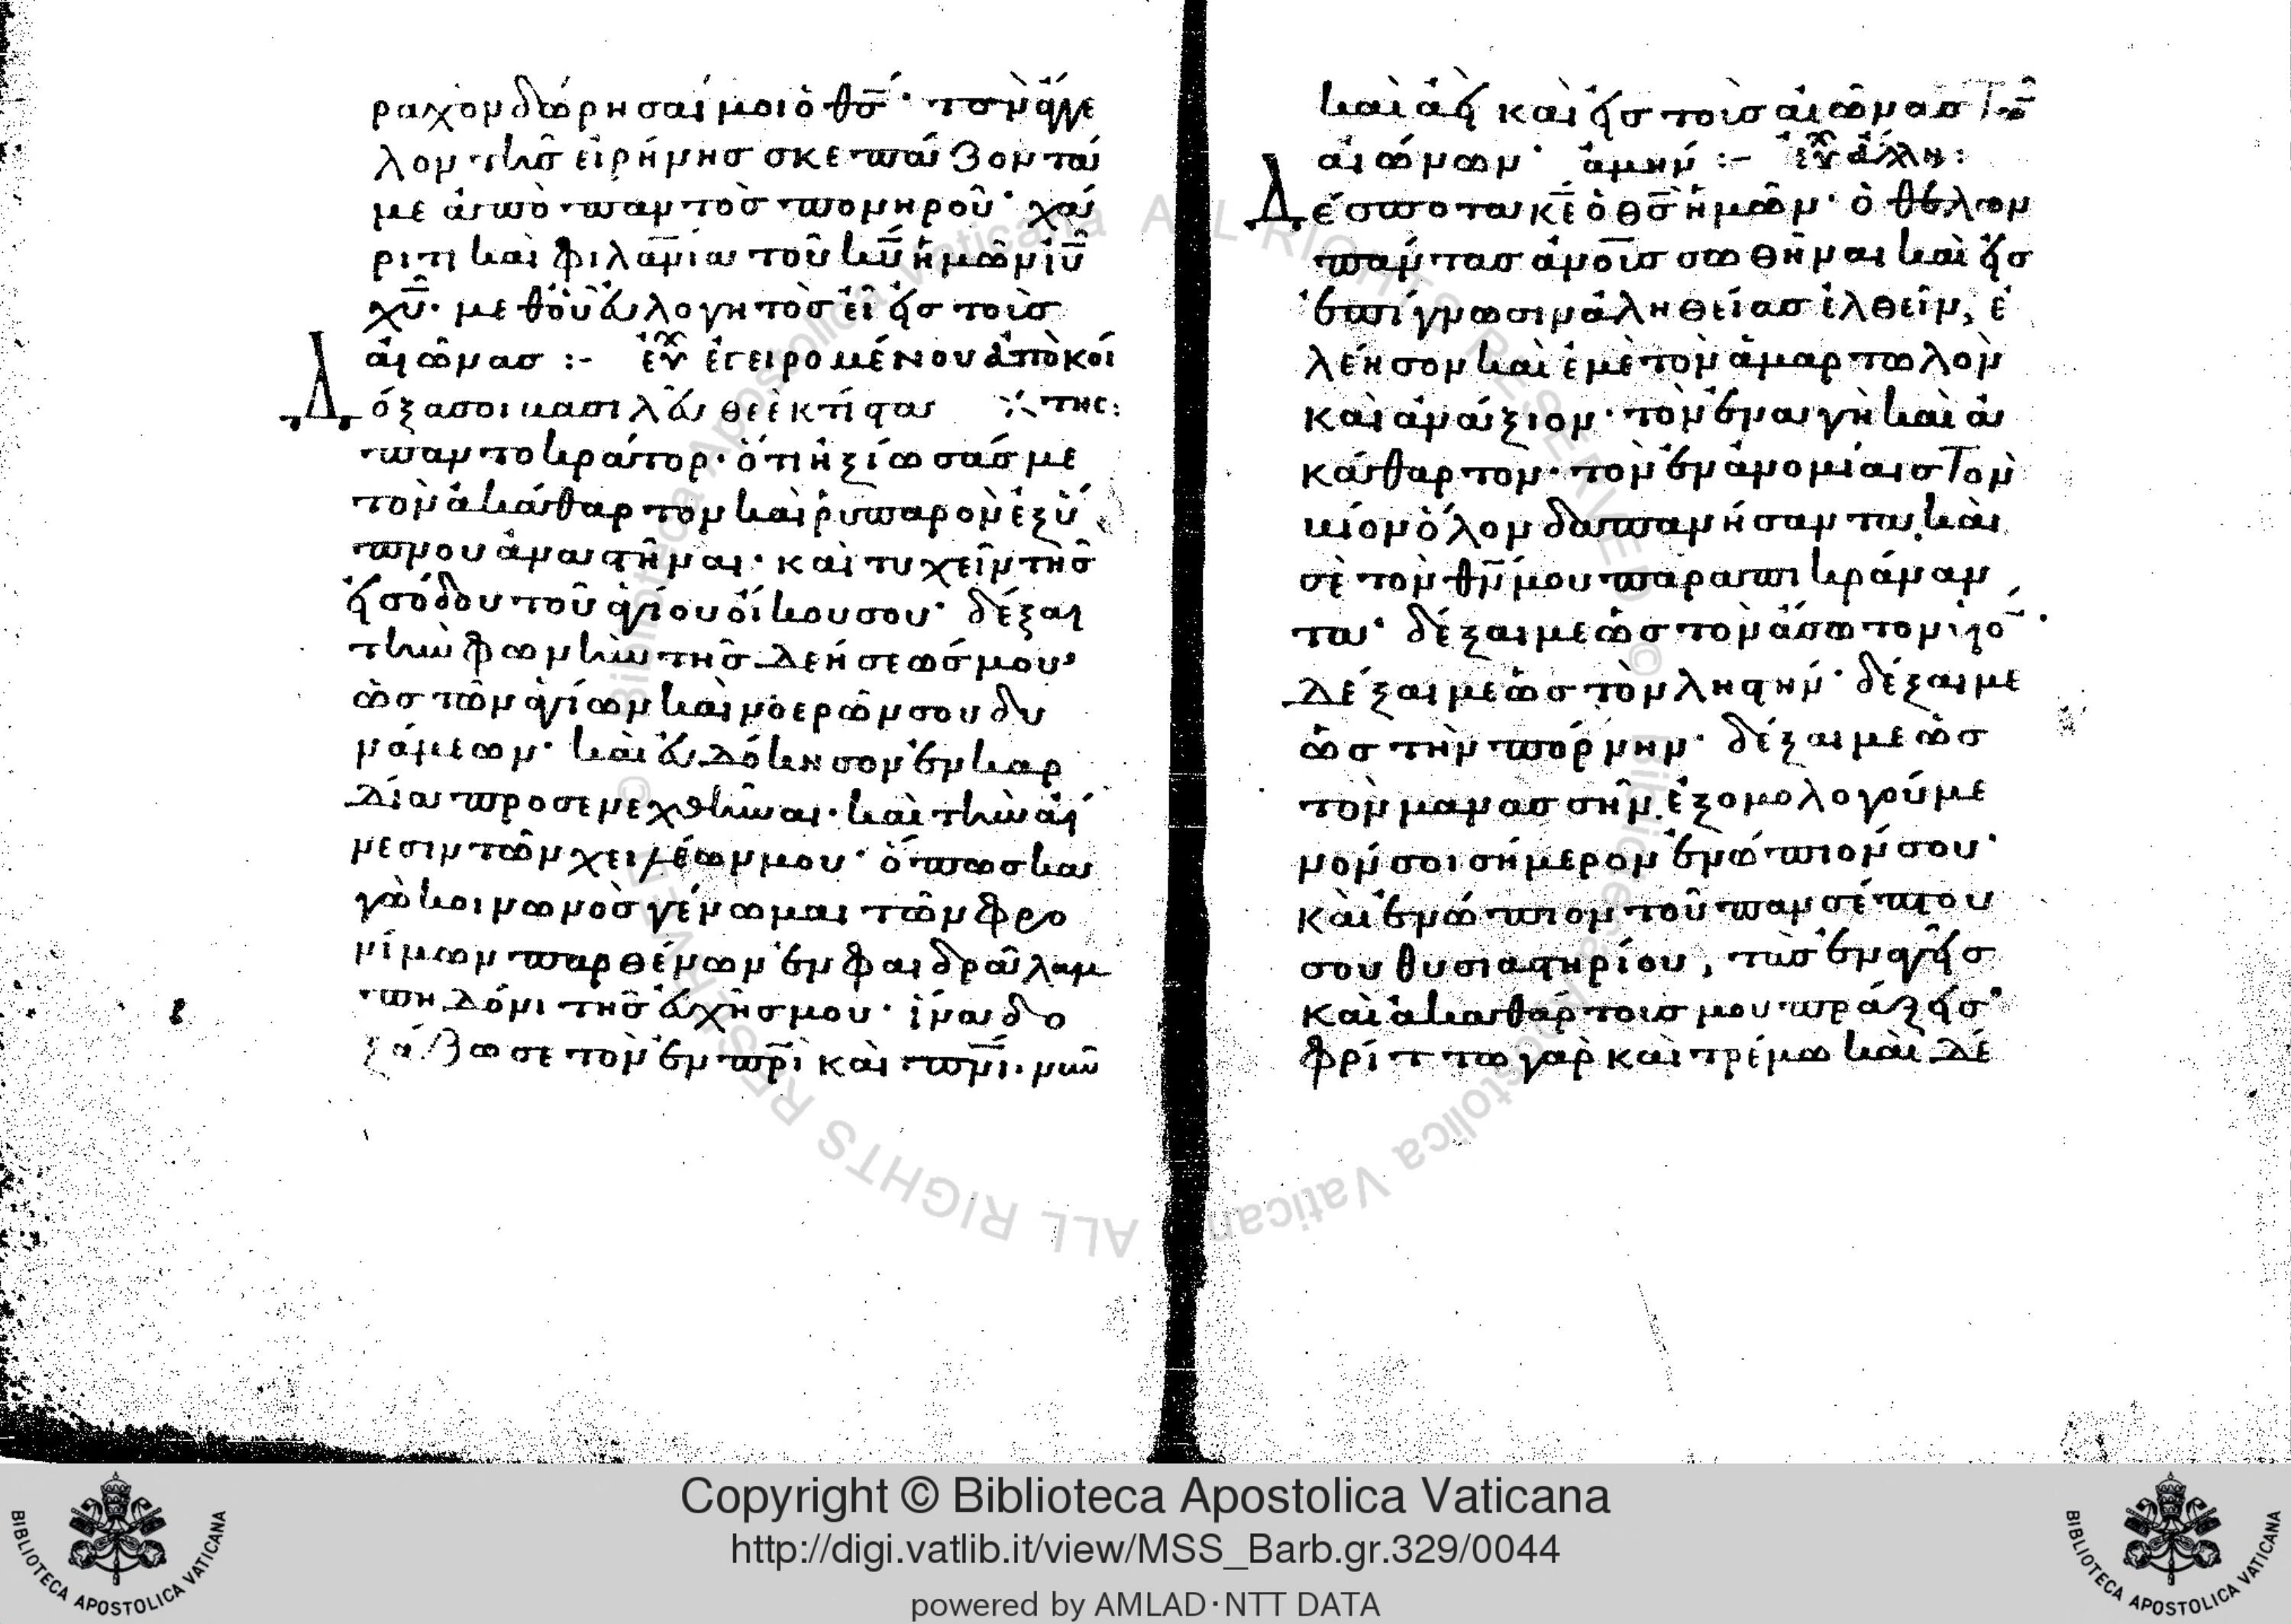 ραχὸν δώρησαί μοι ὁ θσ· τὸν ἄγγε
λον τῆσ εἰρήνησ σκεπάζοντά
με ἀπὸ παντὸσ πονηροῦ· χά
ριτι καὶ φιλανια τοῦ κυ ἡμῶν ιυ
χυ· μεθ οὗ εὐλογητὸσ εἶ εἰσ τοὺσ
αἰῶνασ :- εὐχ ἐγειρομένου ἀπὸ κοί
της:
Δόξα σοι βασιλεῦ θεὲ κτίστα
παντοκράτορ· ὅτι ἠξίωσάσ με
τὸν ἀκάθαρτον καὶ ῥυπαρὸν ἐξ ὕ
πνου ἀναστῆναι· καὶ τυχεῖν τῆσ
εἰσόδου τοῦ ἁγίου οἴκου σου· δέξαι
τὴν φωνὴν τῆσ δεήσεώσ μου·
ὡσ τῶν ἁγίων καὶ νοερῶν σου δυ
νάμεων· καὶ εὐδόκησον ἐν καρ
δία προσενεχθῆναι· καὶ τὴν αἴ
νεσιν τῶν χειλέων μου· ὅπωσ κα
γὼ κοινωνὸσ γένωμαι τῶν φρο
νίμων παρθένων ἐν φαιδρᾶ λαμ
πηδόνι τῆσ εὐχῆσ μου· ἵνα δο
ξάζω σε τὸν ἐν πρὶ καὶ πνι· νῦν
καὶ ἀεὶ καὶ εἰσ τοὺσ αἰῶνασ τῶ
αἰώνων· ἀμήν :- εὐχ ἄλλη:
Δέσποτα κε ὁ θσ ἡμῶν· ὁ θέλων
πάντασ ἀνουσ σωθῆναι καὶ εἰσ
ἐπίγνωσιν ἀληθείασ ἐλθεῖν, ἐ
λέησον καὶ ἐμὲ τὸν ἁμαρτωλὸν
καὶ ἀνάξιον· τὸν ἐναγῆ καὶ ἀ
κάθαρτον· τὸν ἐν ἀνομίαισ τὸν
βίον ὅλον δαπανήσαντα, καὶ
σὲ τὸν θν μου παραπικράναν
τα· δέξαι με ὡσ τὸν ἄσωτον υἱο·
Δέξαι με ὡσ τὸν ληστήν· δέξαι με
ὡσ τὴν πόρνην· δέξαι με ὡσ
τὸν μανασσῆν. ἐξομολογούμε
νόν σοι σήμερον ἐνώπιόν σου·
καὶ ἐνώπιον τοῦ πανσέπτου
σου θυσιαστηρίου, τὰσ ἐναγεῖσ
καὶ ἀκαθάρτουσ μου πράξεισ·
φρίττω γὰρ καὶ τρέμω καὶ δέ
Copyright © Biblioteca Apostolica Vaticana
http://digi.vatlib.it/view/MSS_Barb.gr.329/0044
powered by AMLAD·NTT DATA
BIBLIOTECA APOSTOLICA VATICANA
BIBLIOTECA APOSTOLICA VATICANA